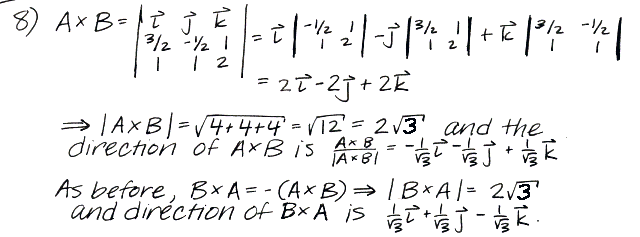 8) A×B = | i⃗ j⃗ k⃗ ; 3/2 -1/2 1 ; 1 1 2 | = i⃗ | -1/2 1 ; 1 2 | - j⃗ | 3/2 1 ; 1 2 | + k⃗ | 3/2 -1/2 ; 1 1 |
= 2i⃗ - 2j⃗ + 2k⃗
⇒ |A×B| = √4+4+4 = √12 = 2√3 and the
direction of A×B is A×B/|A×B| = -1/√3 i⃗ - 1/√3 j⃗ + 1/√3 k⃗
As before, B×A = -(A×B) ⇒ |B×A| = 2√3
and direction of B×A is 1/√3 i⃗ + 1/√3 j⃗ - 1/√3 k⃗.